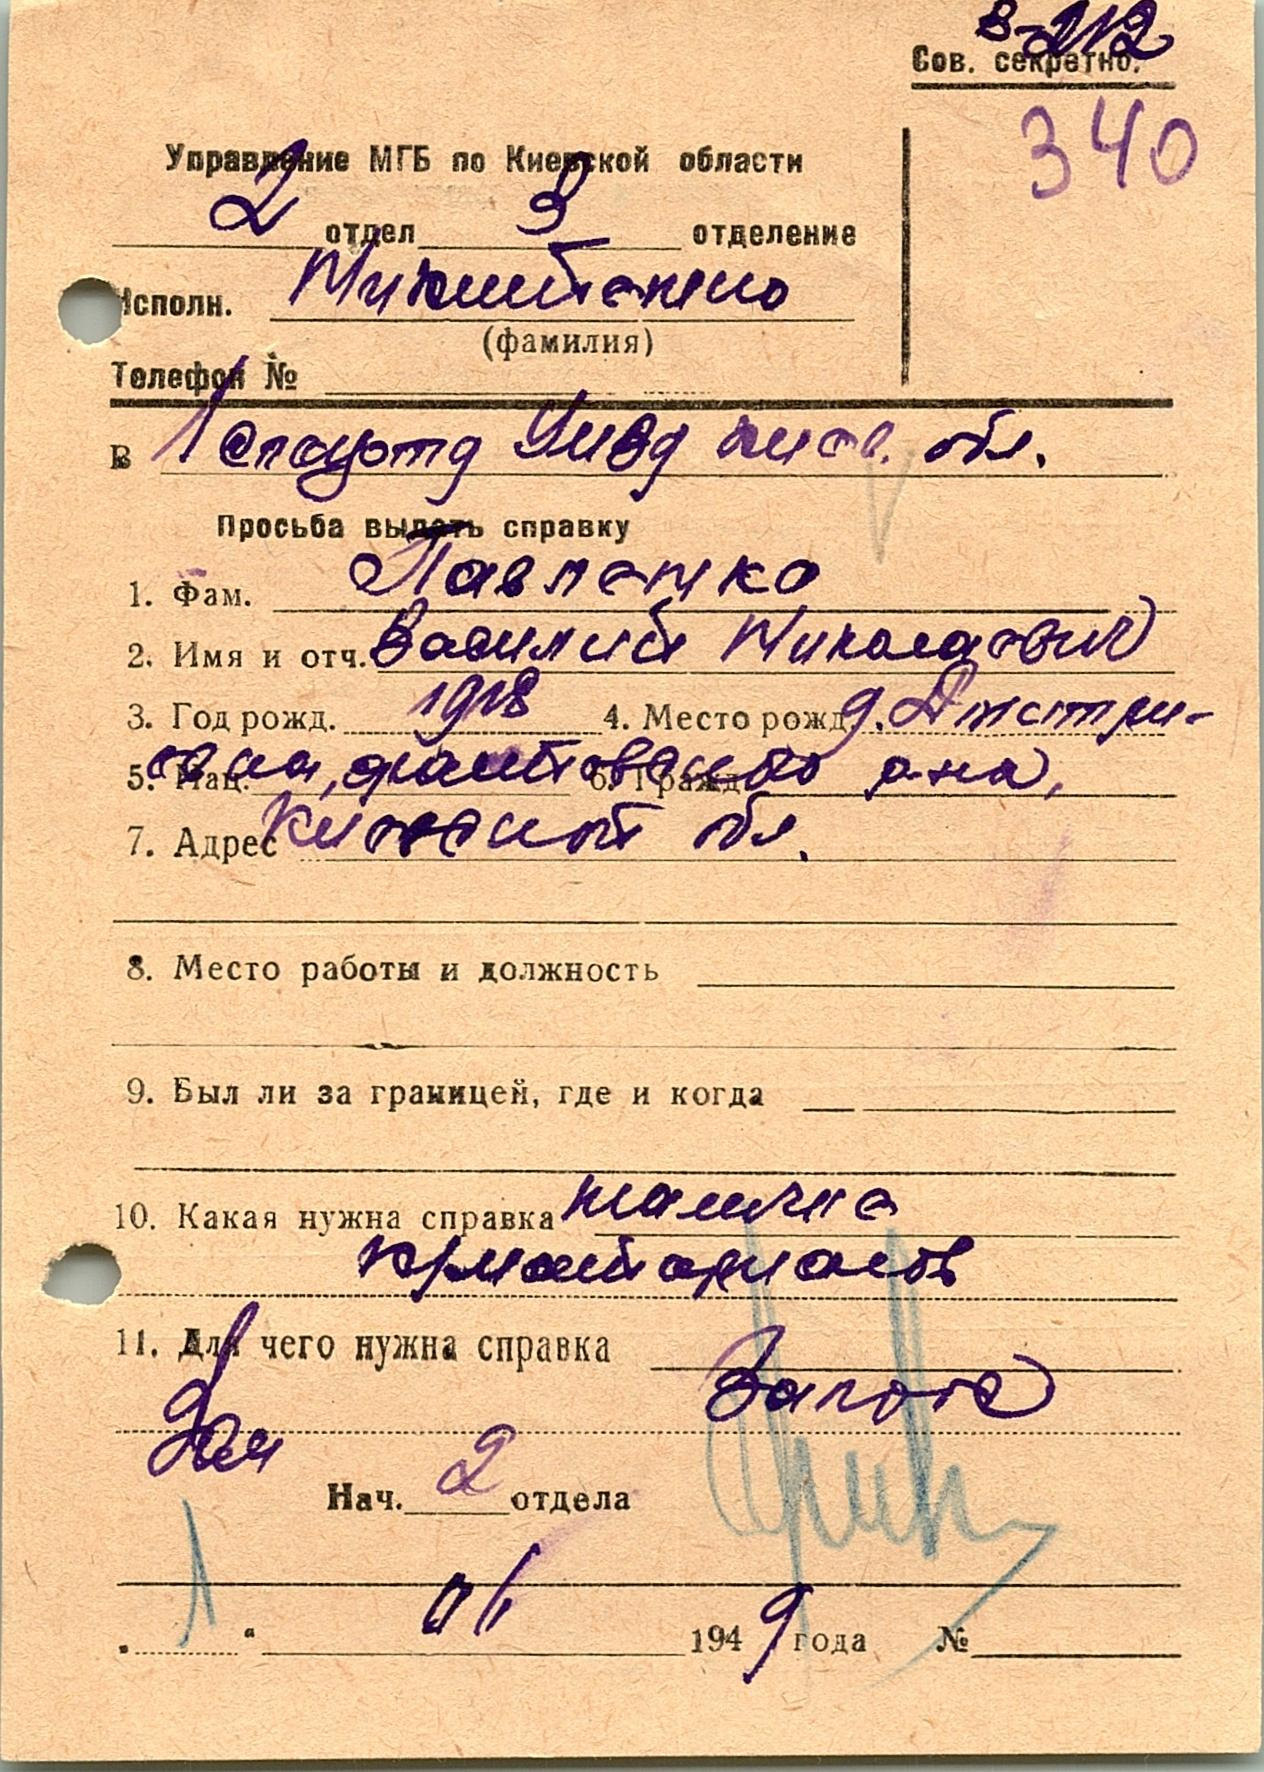 в-212
Сов. секретно.
340
Управление МГБ по Киевской области
2 отдел 3 отделение
Исполн. Микитенко
(фамилия)
Телефон №
В 1 спецотд УМВД киев. обл.
Просьба выдать справку
1. Фам. Павленко
2. Имя и отч. Василий Николаевич
3. Год рожд. 1918 4. Место рожд. д.
5. Нац. 6. Гражд. р-на,
7. Адрес Киевской обл.
8. Место работы и должность
9. Был ли за границей, где и когда
10. Какая нужна справка наличие
11. Для чего нужна справка
Нач. 2 отдела
1
„ “ 1949 года №